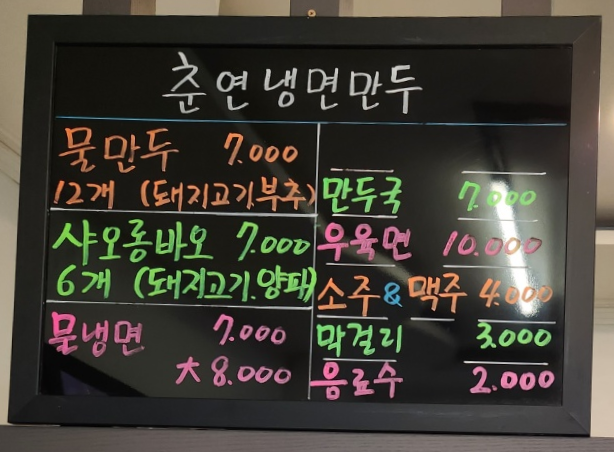 춘연냉면만두
물만두 7.000
12개 (돼지고기.부추)
샤오롱바오 7.000
6개 (돼지고기.양파)
물냉면 7.000
大 8.000
만두국 7.000
우육면 10.000
소주 & 맥주 4.000
막걸리 3.000
음료수 2.000